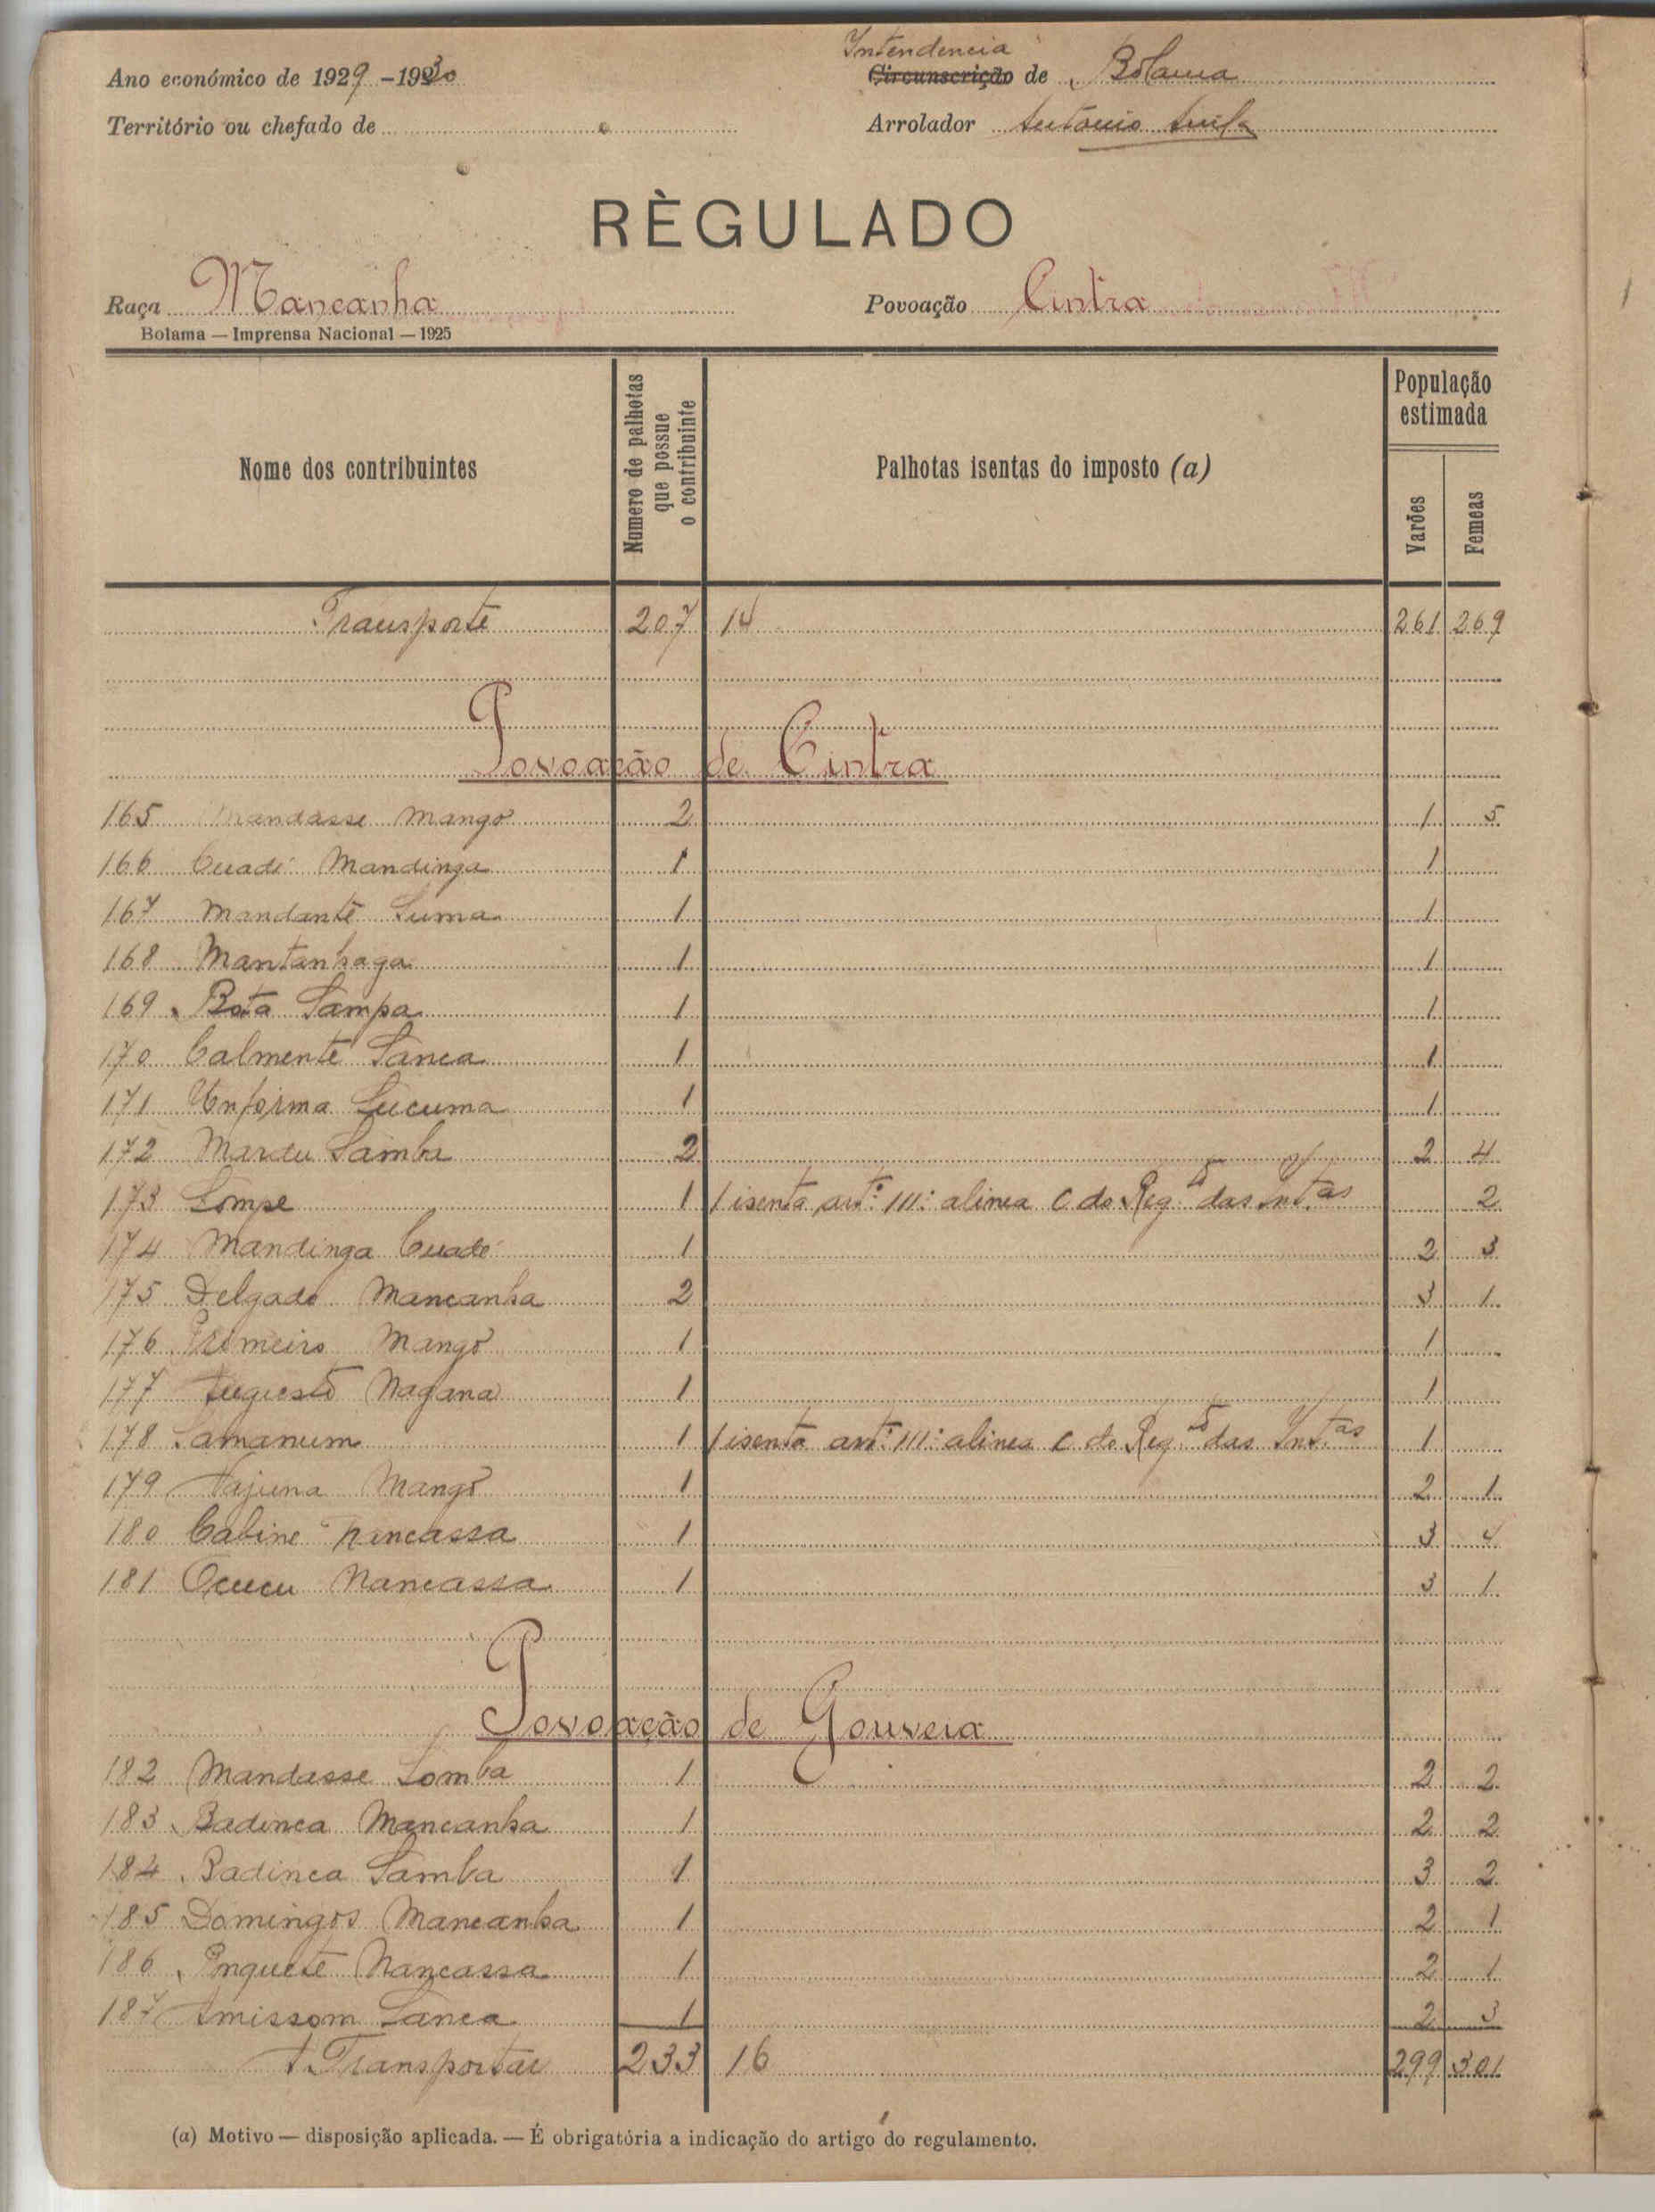 Intendencia
Ano económico de 1929-1930 Circunscrição de Bolama
Território ou chefado de Arrolador Antonio Avila
RÈGULADO
Raça Mancanha Povoação Cintra
Bolama — Imprensa Nacional — 1925
Nome dos contribuintes Numero de palhotas que possue o contribuinte Palhotas isentas do imposto (a) População estimada Varões Femeas
Transporte 207 14 261 269
Povoação de Cintra
165 Mandasse Mango 2 1 5
166 Cuadé Mandinga 1 1
167 Mandante Suma 1 1
168 Mantanhaga 1 1
169 Bóta Sampa 1 1
170 Calmente Sanca 1 1
171 Unforma Lucuma 1 1
172 Mardu Samba 2 2 4
173 Lompe 1 1 isenta artº 111º alinea C do Reg.to das Int.as 2
174 Mandinga Cuadé 1 2 3
175 Delgado Mancanha 2 3 1
176 Promeiro Mango 1 1
177 Augusto Nagana 1 1
178 Samanum 1 1 isenta artº 111º alinea C do Reg.to das Int.as 1
179 Najuna Mango 1 2 1
180 Cabine Nancassa 1 3 4
181 Ocucu Nancassa 1 3 1
Povoação de Gouveia
182 Mandasse Lomba 1 2 2
183 Badinca Mancanha 1 2 2
184 Badinca Samba 1 3 2
185 Domingos Mancanha 1 2 1
186 Onquete Nancassa 1 2 1
187 Amissom Sanca 1 2 3
A Transportar 233 16 299 301
(a) Motivo — disposição aplicada. — É obrigatória a indicação do artigo do regulamento.